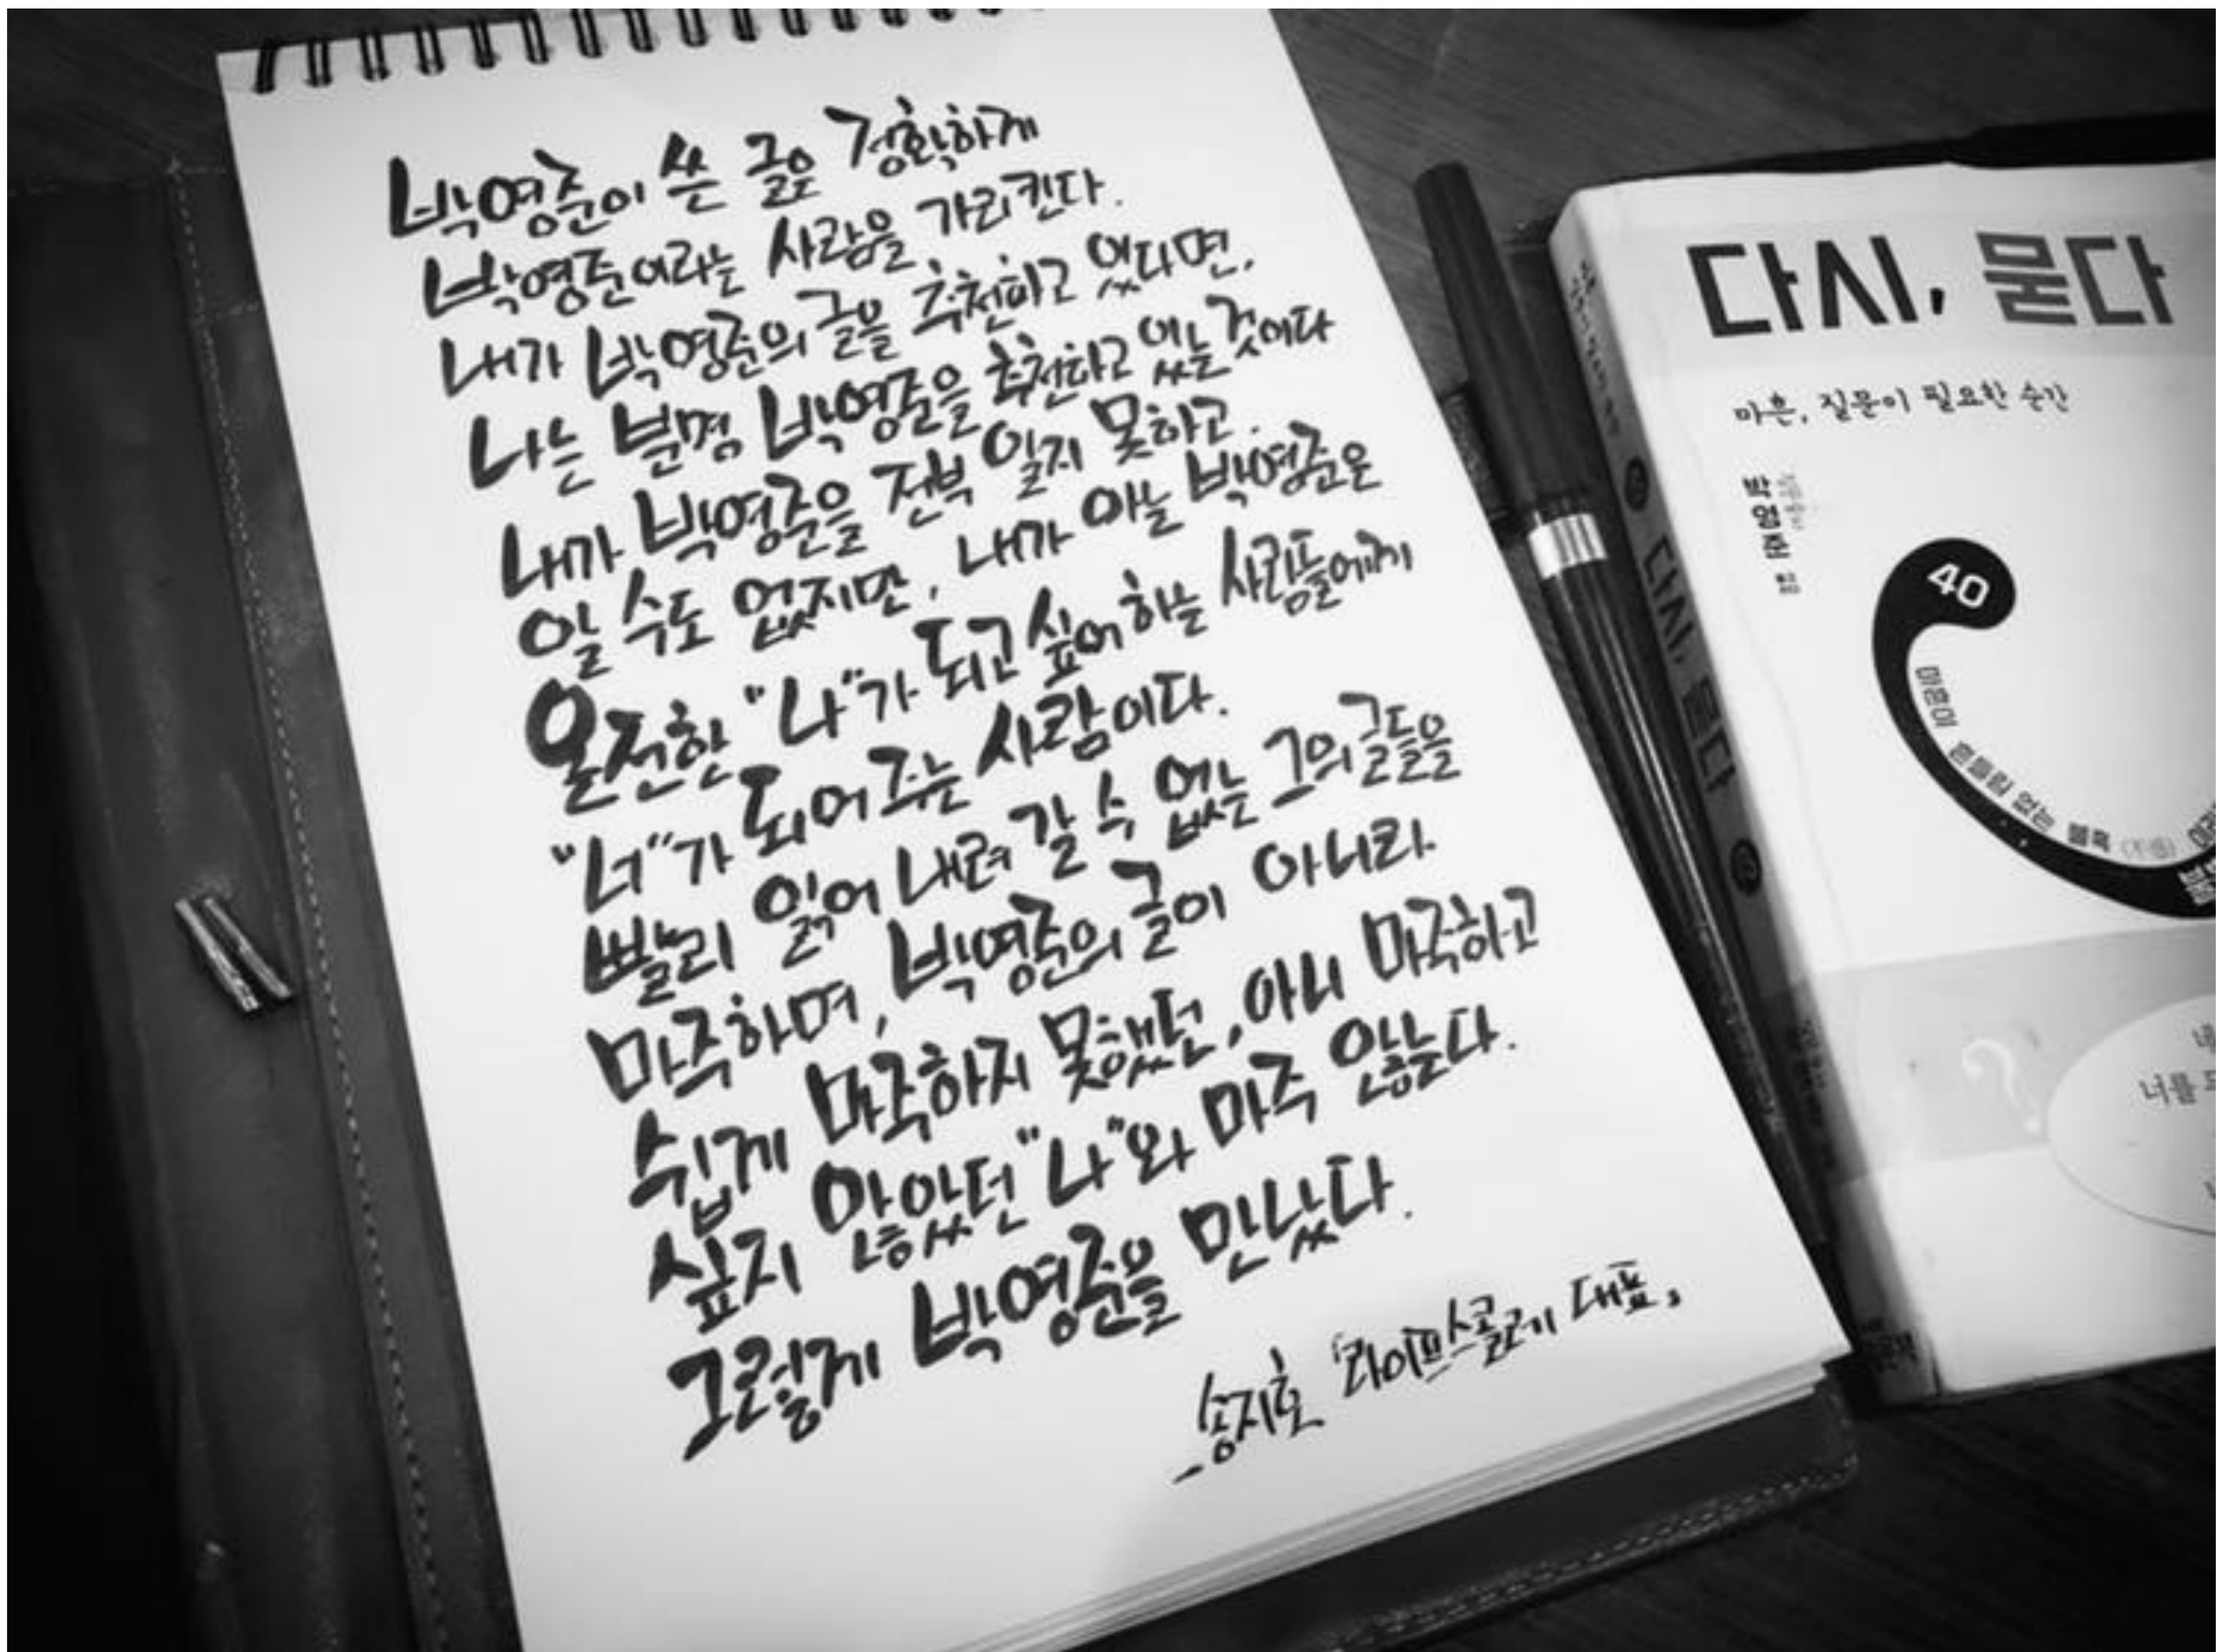 박영준이 쓴 글은 정확하게
박영준이라는 사람을 가리킨다.
내가 박영준의 글을 추천하고 있다면,
나는 분명 박영준을 추천하고 있는 것이다
내가 박영준을 전부 알지 못하고.
알 수도 없지만, 내가 아는 박영준은
온전한 "나"가 되고 싶어 하는 사람들에게
"너"가 되어 주는 사람이다.
빨리 읽어 내려 갈 수 없는 그의 글들을
마주하며, 박영준의 글이 아니라
쉽게 마주하지 못했던, 아니 마주하고
싶지 않았던 "나"와 마주 앉는다.
그렇게 박영준을 만났다.
- 송지호 「라이프스콜레 대표」
다시, 묻다
마흔, 질문이 필요한 순간
박영준
40
마흔이 흔들림 없는 불혹
너를
다시, 묻다